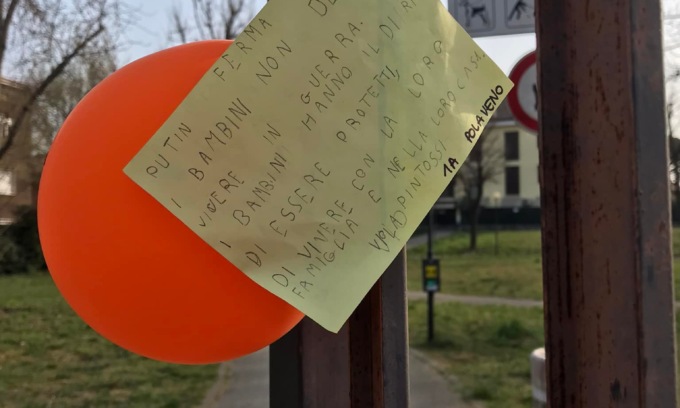 PUTIN FERMA
I BAMBINI NON DE
VIVERE IN GUERRA.
I BAMBINI HANNO IL DIRI
DI ESSERE PROTETTI,
DI VIVERE CON LA LORO
FAMIGLIA E NELLA LORO CASA.
1A POLAVENO